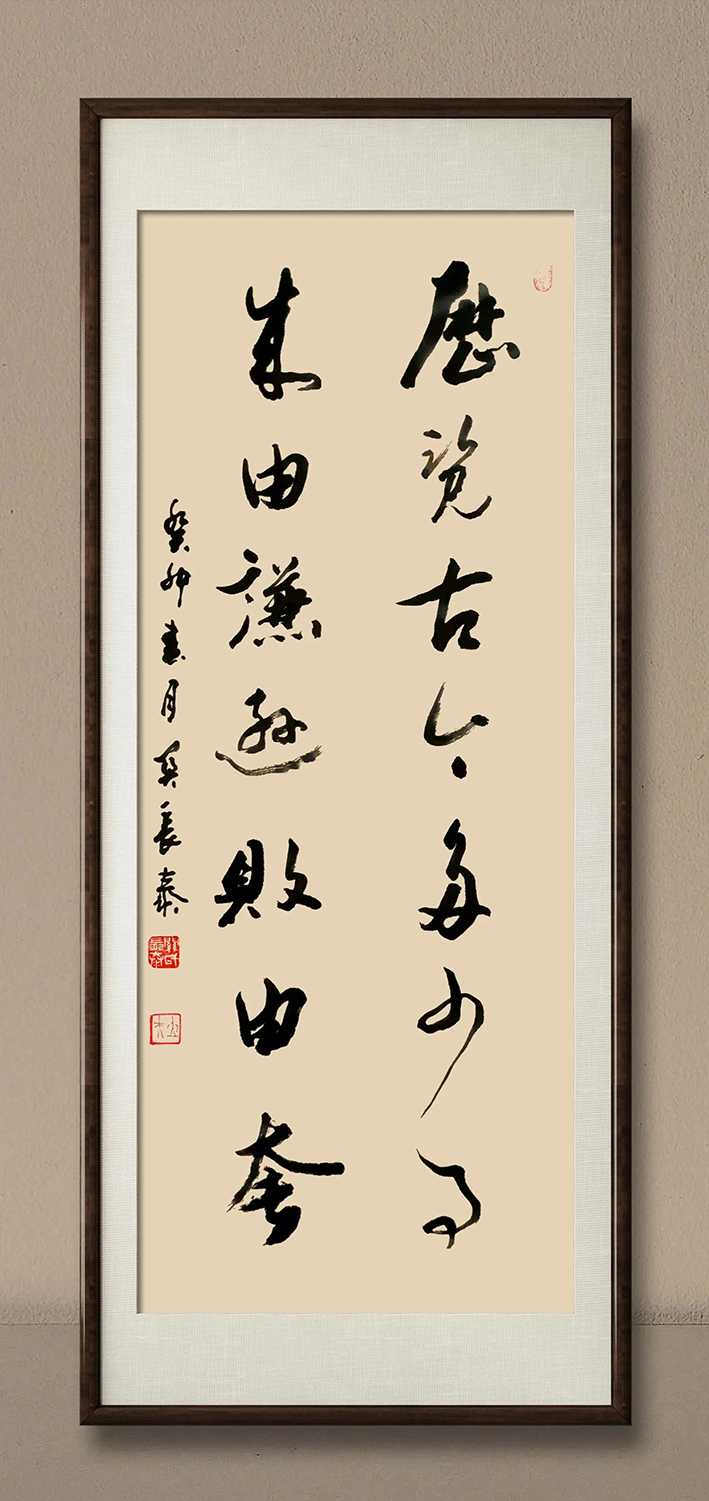 歷覽古今多少事
成由謙遜敗由奢
癸卯春月吴長泰